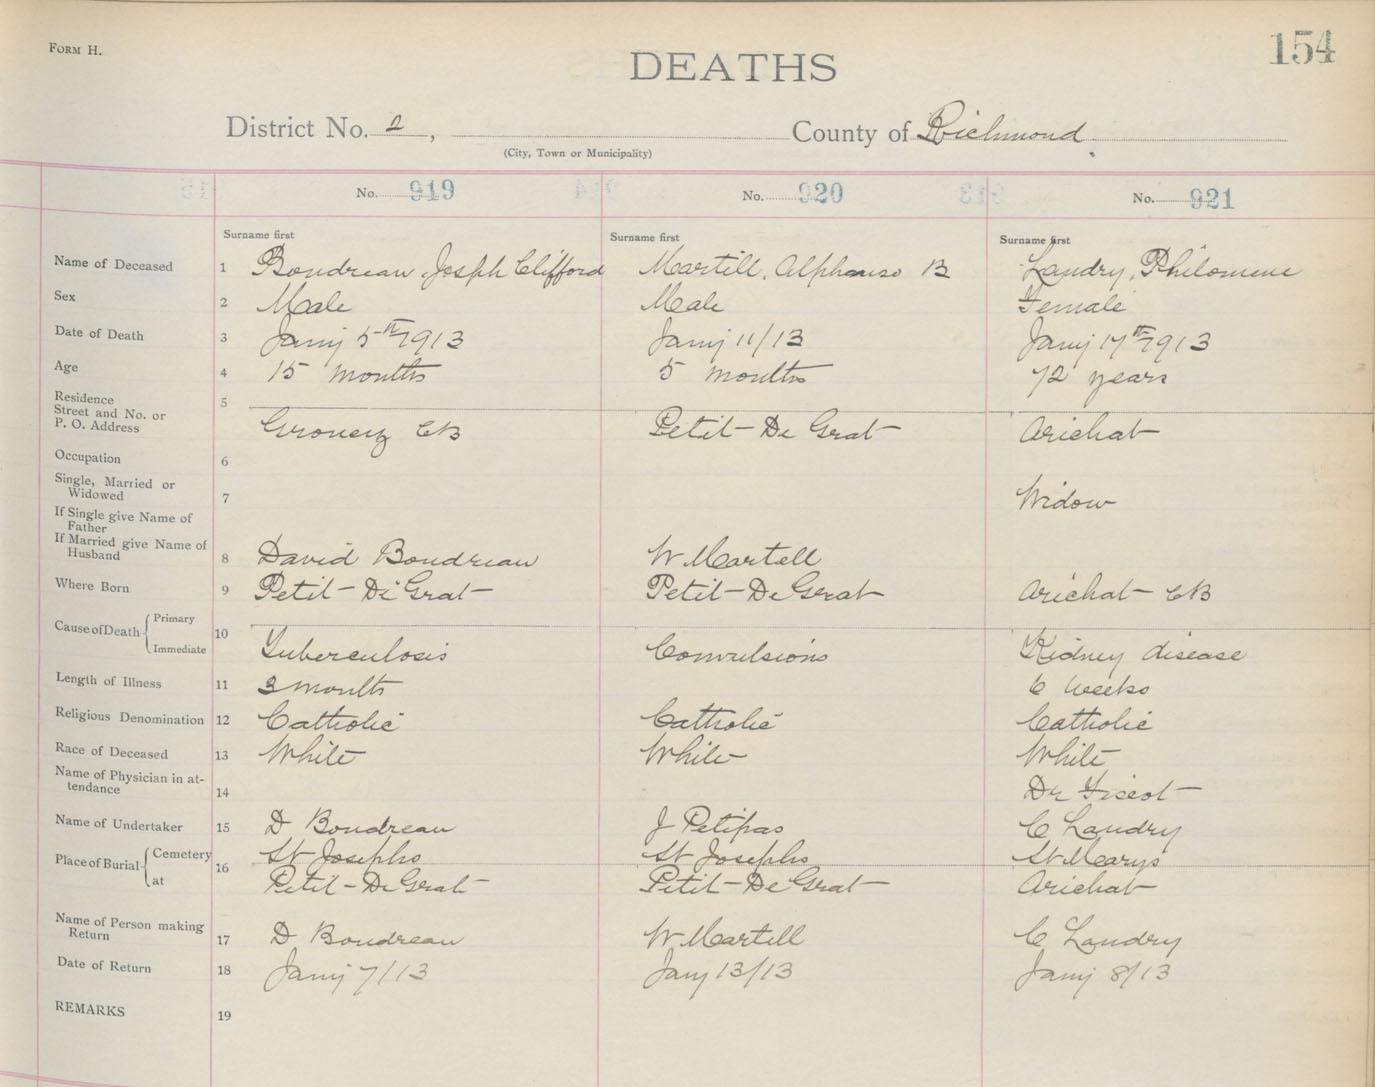 FORM H.
154
DEATHS
District No. 2, County of Richmond
(City, Town or Municipality)
No. 919 No. 920 No. 921
Surname first Surname first Surname first
Name of Deceased 1 Boudreau Joseph Clifford Martell, Alphonso B Landry, Philomene
Sex 2 Male Male Female
Date of Death 3 Jany 5th 1913 Jany 11/13 Jany 17th 1913
Age 4 15 months 5 months 72 years
Residence
Street and No. or 5
P. O. Address CB Petit-De Grat Arichat
Occupation 6
Single, Married or
Widowed 7 Widow
If Single give Name of
Father
If Married give Name of
Husband 8 David Boudreau W Martell
Where Born 9 Petit-De Grat Petit-De Grat Arichat CB
Cause of Death Primary
Immediate 10 Tuberculosis Convulsions Kidney disease
Length of Illness 11 3 months 6 weeks
Religious Denomination 12 Catholic Catholic Catholic
Race of Deceased 13 White White White
Name of Physician in at-
tendance 14 Dr
Name of Undertaker 15 D Boudreau J Petipas C Landry
Place of Burial Cemetery 16 St Josephs St Josephs St Marys
at Petit-De Grat Petit-De Grat Arichat
Name of Person making
Return 17 D Boudreau W Martell C Landry
Date of Return 18 Jany 7/13 Jany 13/13 Jany 8/13
REMARKS 19